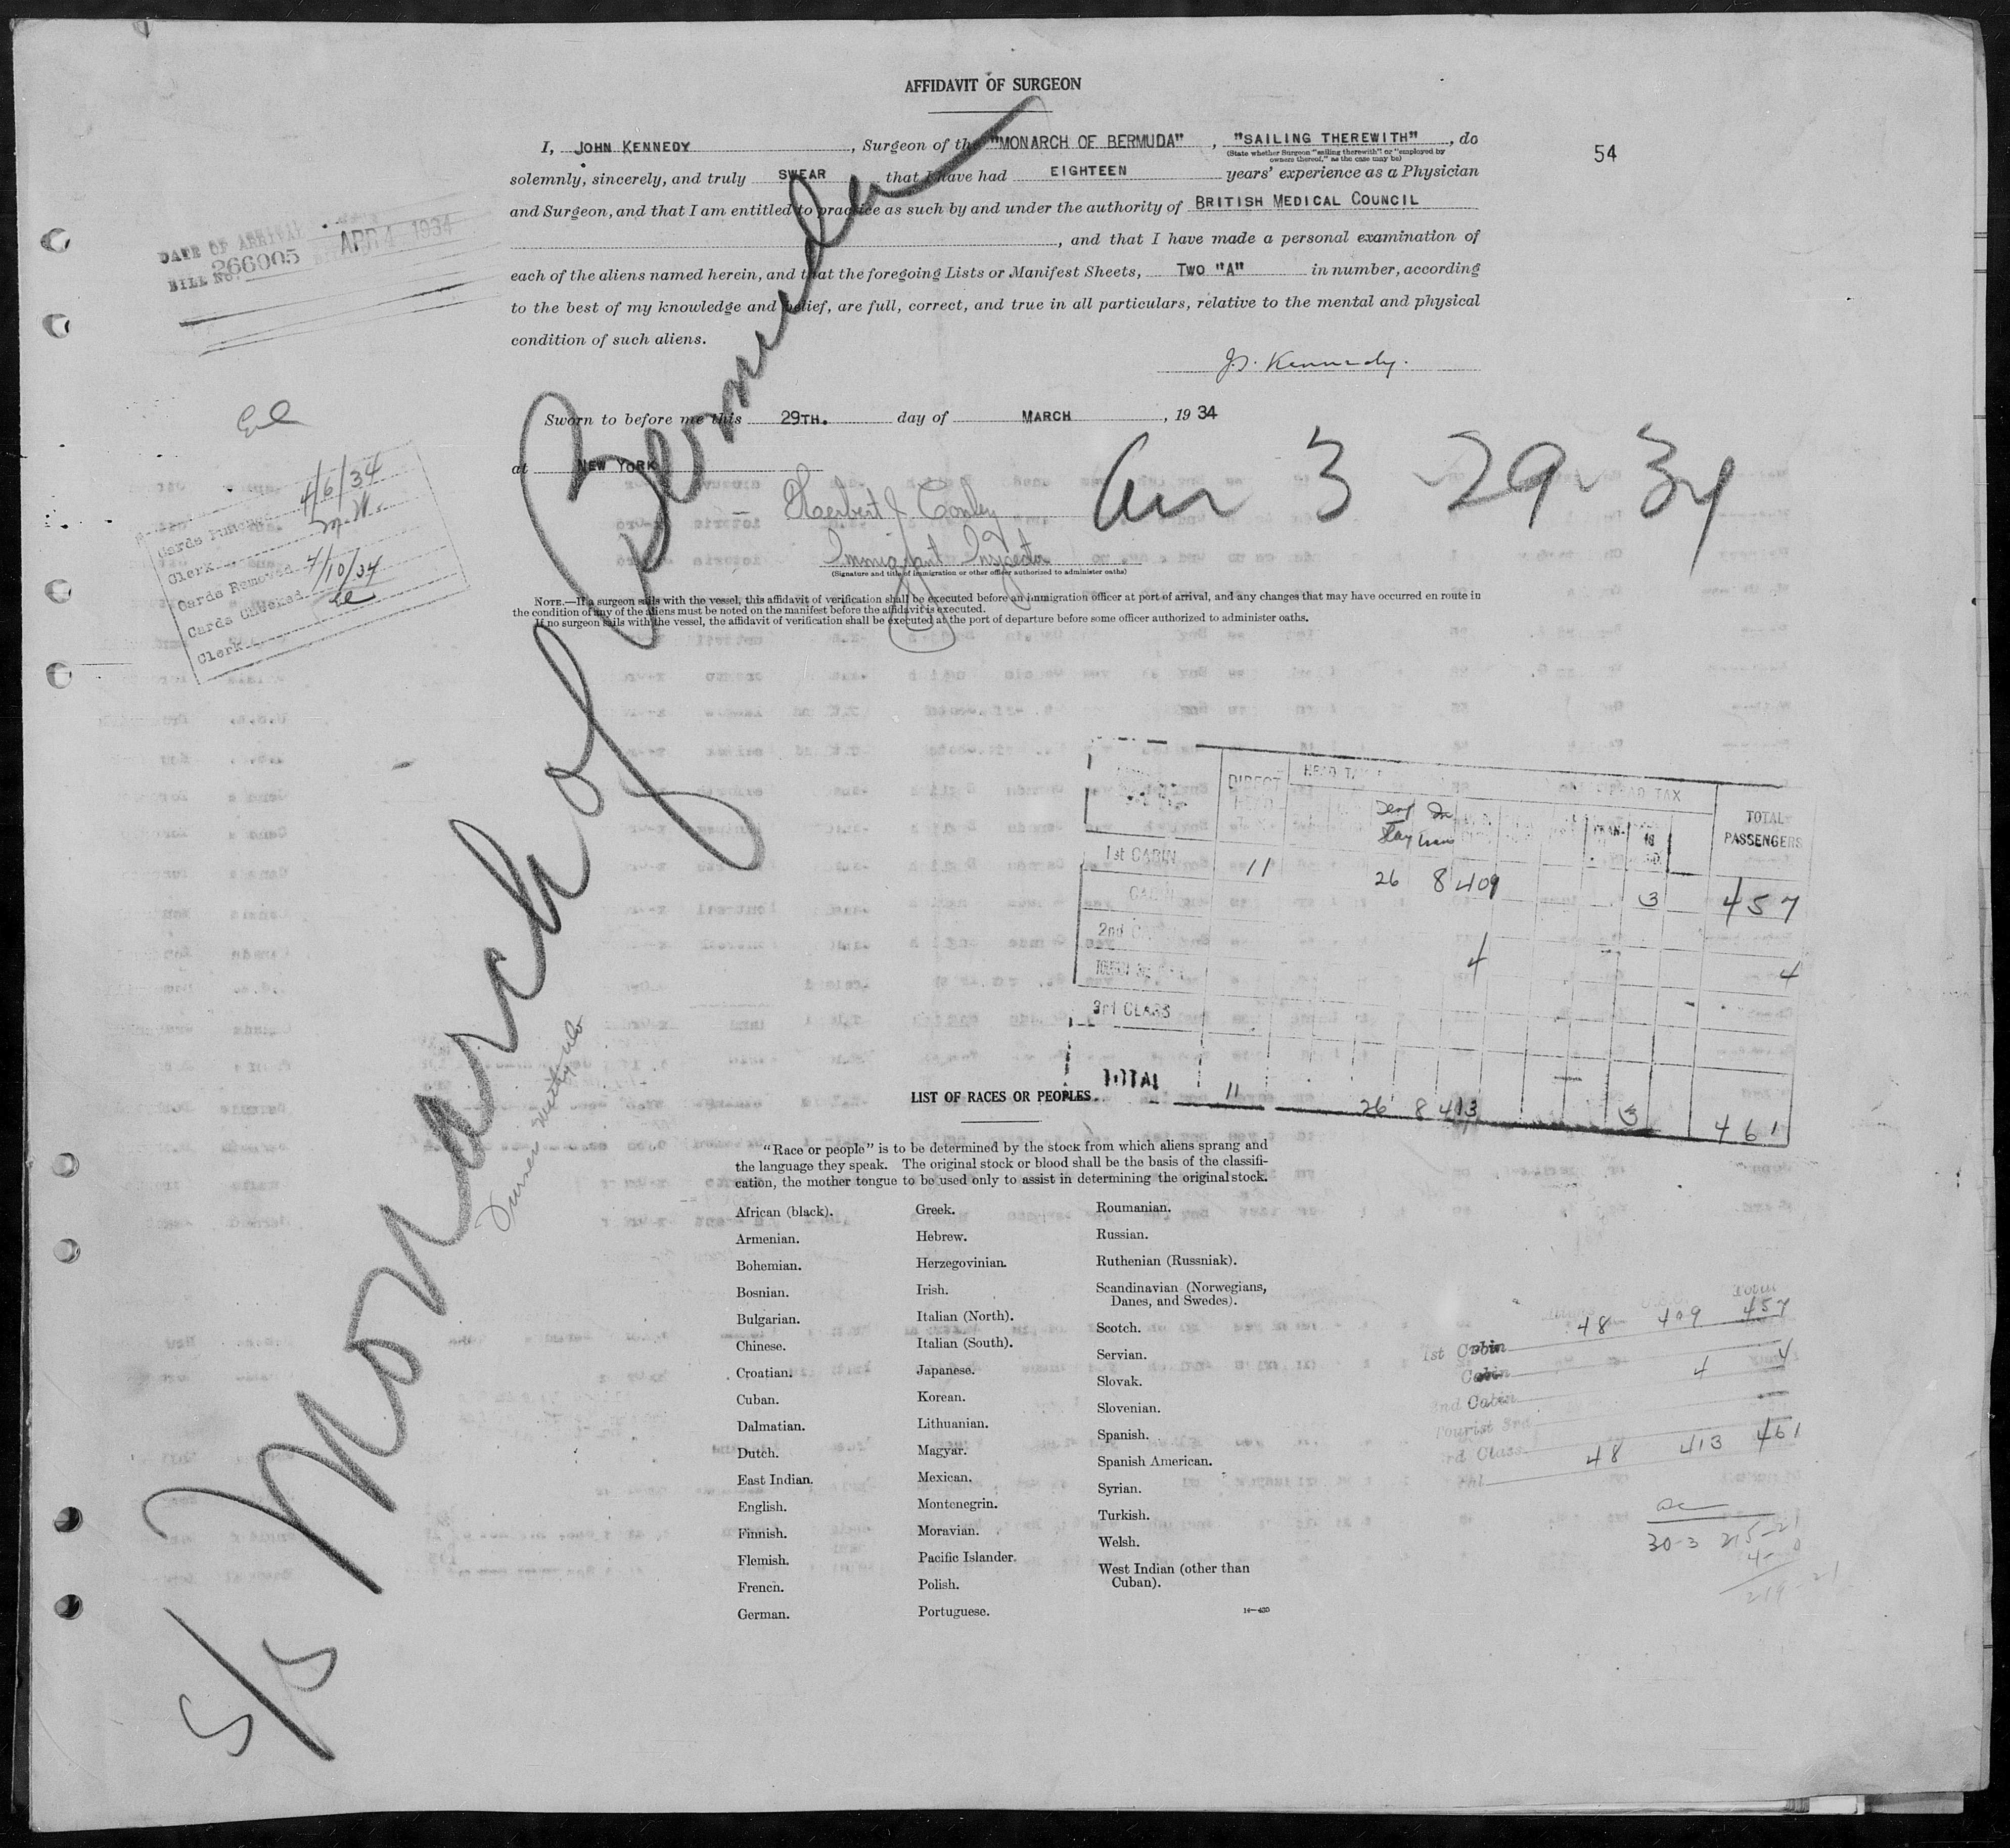 AFFIDAVIT OF SURGEON
54
I, JOHN KENNEDY, Surgeon of the "MONARCH OF BERMUDA", "SAILING THEREWITH", do
(State whether Surgeon "sailing therewith" or "employed by owners thereof," as the case may be)
solemnly, sincerely, and truly SWEAR that I have had EIGHTEEN years' experience as a Physician
and Surgeon, and that I am entitled to practice as such by and under the authority of BRITISH MEDICAL COUNCIL
, and that I have made a personal examination of
each of the aliens named herein, and that the foregoing Lists or Manifest Sheets, TWO "A" in number, according
to the best of my knowledge and belief, are full, correct, and true in all particulars, relative to the mental and physical
condition of such aliens.
J. Kennedy.
Sworn to before me this 29TH. day of MARCH, 19 34
at NEW YORK
Immigrant Inspector
(Signature and title of immigration or other officer authorized to administer oaths)
NOTE.—If a surgeon sails with the vessel, this affidavit of verification shall be executed before an immigration officer at port of arrival, and any changes that may have occurred en route in
the condition of any of the aliens must be noted on the manifest before the affidavit is executed.
If no surgeon sails with the vessel, the affidavit of verification shall be executed at the port of departure before some officer authorized to administer oaths.
DATE OF ARRIVAL APR 4 1934
BILL NO. 266005
Cards Punched 4/6/34
Clerk M.W.
Cards Removed
Cards Checked 4/10/34
Clerk
S/S Monarch of Bermuda
Arr 3-29-34
DIRECT HEAD TAX
HEAD TAX
TOTAL PASSENGERS
1st CABIN 11 26 8 409 3 457
CABIN
2nd 4 4
3rd CLASS
TOTAL 11 26 8 413 3 461
LIST OF RACES OR PEOPLES
"Race or people" is to be determined by the stock from which aliens sprang and
the language they speak. The original stock or blood shall be the basis of the classifi-
cation, the mother tongue to be used only to assist in determining the original stock.
African (black).
Armenian.
Bohemian.
Bosnian.
Bulgarian.
Chinese.
Croatian.
Cuban.
Dalmatian.
Dutch.
East Indian.
English.
Finnish.
Flemish.
French.
German.
Greek.
Hebrew.
Herzegovinian.
Irish.
Italian (North).
Italian (South).
Japanese.
Korean.
Lithuanian.
Magyar.
Mexican.
Montenegrin.
Moravian.
Pacific Islander.
Polish.
Portuguese.
Roumanian.
Russian.
Ruthenian (Russniak).
Scandinavian (Norwegians,
Danes, and Swedes).
Scotch.
Servian.
Slovak.
Slovenian.
Spanish.
Spanish American.
Syrian.
Turkish.
Welsh.
West Indian (other than
Cuban).
Total
1st Cabin 48 409 457
Cabin 4 4
2nd Cabin
Tourist 3rd
3rd Class 48 413 461
30-3 215-21
4-0
219-21